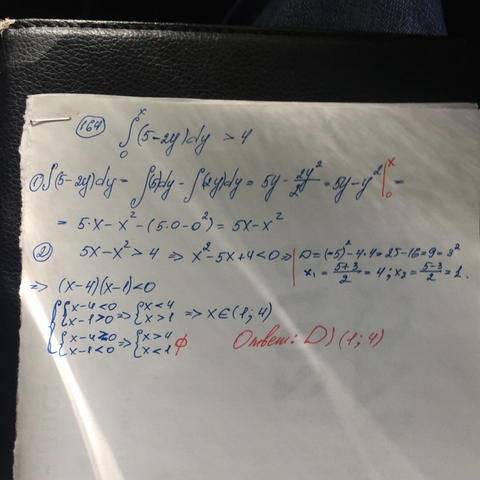 164 ∫₀ˣ (5-2y)dy > 4
① ∫(5-2y)dy = ∫(5)dy - ∫(2y)dy = 5y - 2y²/2 = 5y - y² |₀ˣ =
= 5·x - x² - (5·0-0²) = 5x-x²
② 5x-x² > 4 ⇒ x²-5x+4<0 ⇒ | D=(-5)²-4·4=25-16=9=3²
x₁ = (5+3)/2 = 4; x₂ = (5-3)/2 = 1.
⇒ (x-4)(x-1)<0
{x-4<0 ⇒ {x<4 ⇒ x∈(1; 4)
{x-1>0 {x>1
{x-4>0 ⇒ {x>4 ∅
{x-1<0 {x<1
Ответ: D) (1; 4)